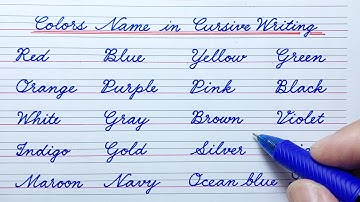 Colors Name in Cursive Writing
Red Blue Yellow Green
Orange Purple Pink Black
White Gray Brown Violet
Indigo Gold Silver
Maroon Navy Ocean blue